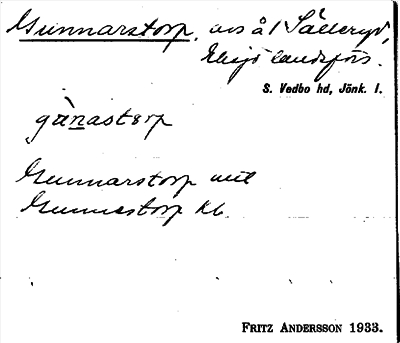 Gunnarstorp, avs å 1 Sälleryd,
Ekesjö landsförs.
S. Vedbo hd, Jönk. l.
gùnastɔrp
Gunnarstorp mtl
Gunnestorp kb.
FRITZ ANDERSSON 1933.